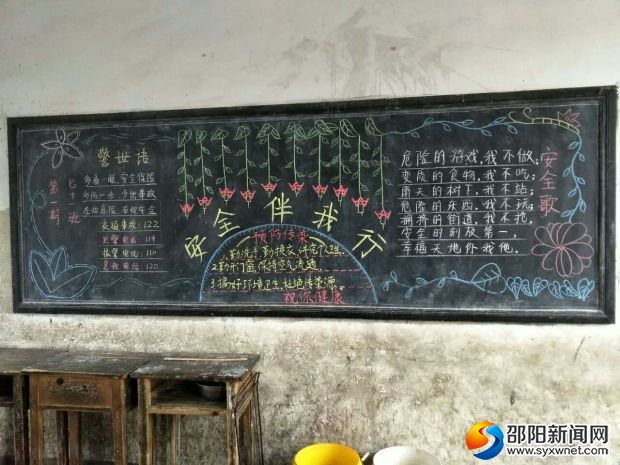 警世语
七十班
第一期
多看一眼 安全保险
多防一步 少出事故
左切危险 右切安全
交通事故：122
火警电话：119
报警电话：110
急救电话：120
安全伴我行
预防传染
1.勤洗手,勤换衣,讲究个人卫生
2.勤开门窗,保持空气流通
3.搞好环境卫生,杜绝传染源。
祝你健康
安全歌
危险的游戏,我不做；
变质的食物,我不吃；
雨天的树下,我不站；
危险的东西,我不玩；
拥挤的街道,我不抢；
安全时刻第一,
幸福天地你我他。
邵阳新闻网
www.syxwnet.com